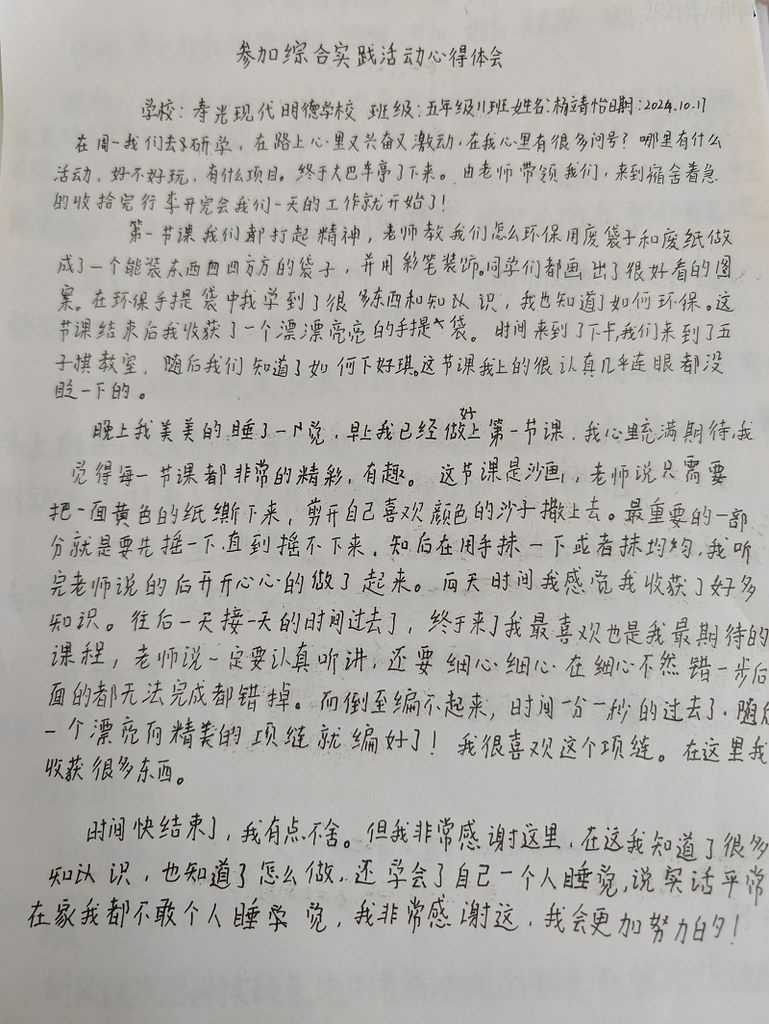 参加综合实践活动心得体会
学校：寿光现代明德学校 班级：五年级11班 姓名：杨靖怡 日期：2024.10.17
在周一我们去了研学，在路上心里又兴奋又激动，在我心里有很多问号？哪里有什么
活动，好不好玩，有什么项目。终于大巴车停了下来。由老师带领我们，来到宿舍着急
的收拾完行李开完会我们一天的工作就开始了！
第一节课我们都打起精神，老师教我们怎么环保用废袋子和废纸做
成了一个能装东西四四方方的袋子，并用彩笔装饰。同学们都画出了很好看的图
案。在环保手提袋中我学到了很多东西和知识，我也知道了如何环保。这
节课结束后我收获了一个漂漂亮亮的手提袋。时间来到了下午，我们来到了五
子棋教室，随后我们知道了如何下好琪。这节课我上的很认真几乎连眼都没
眨一下的。
晚上我美美的睡了一个觉，早上我已经做好上第一节课，我心里充满期待，我
觉得每一节课都非常的精彩，有趣。这节课是沙画，老师说只需要
把一面黄色的纸撕下来，剪开自己喜欢颜色的沙子撒上去。最重要的一部
分就是要先摇一下，直到摇不下来，知后在用手抹一下或者抹均匀，我听
完老师说的后开开心心的做了起来。两天时间我感觉我收获了好多
知识。往后一天接一天的时间过去了，终于来了我最喜欢也是我最期待的
课程，老师说一定要认真听讲，还要细心细心在细心不然错一步后
面的都无法完成都错掉。而倒至编不起来，时间一分一秒的过去了，随后
一个漂亮而精美的项链就编好了！我很喜欢这个项链。在这里我
收获很多东西。
时间快结束了，我有点不舍。但我非常感谢这里，在这我知道了很多
知识，也知道了怎么做，还学会了自己一个人睡觉，说实话平常
在家我都不敢个人睡学觉，我非常感谢这，我会更加努力的！